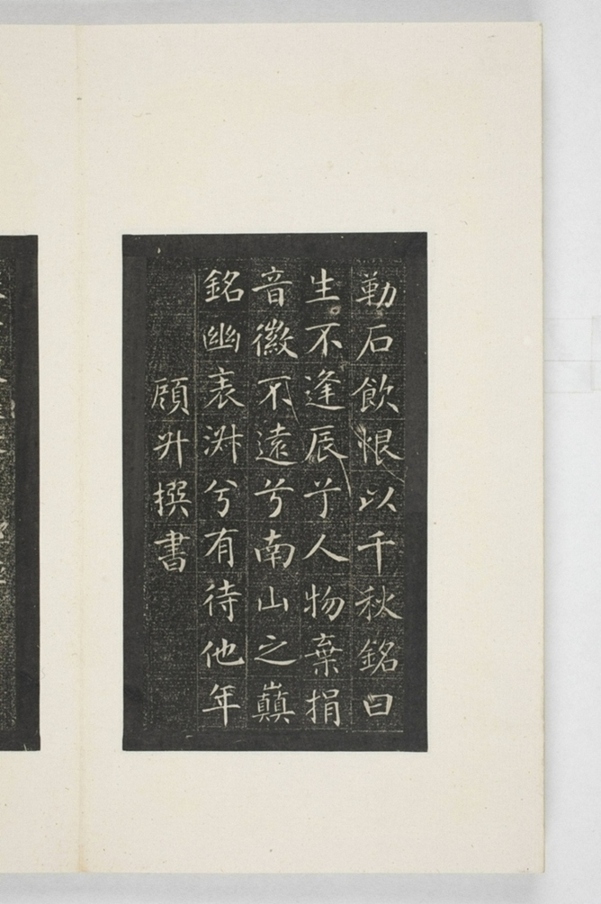 勒石飲恨以千秋銘曰
生不逢辰兮人物棄捐
音徽不遠兮南山之巔
銘幽表泲兮有待他年
顾升撰書